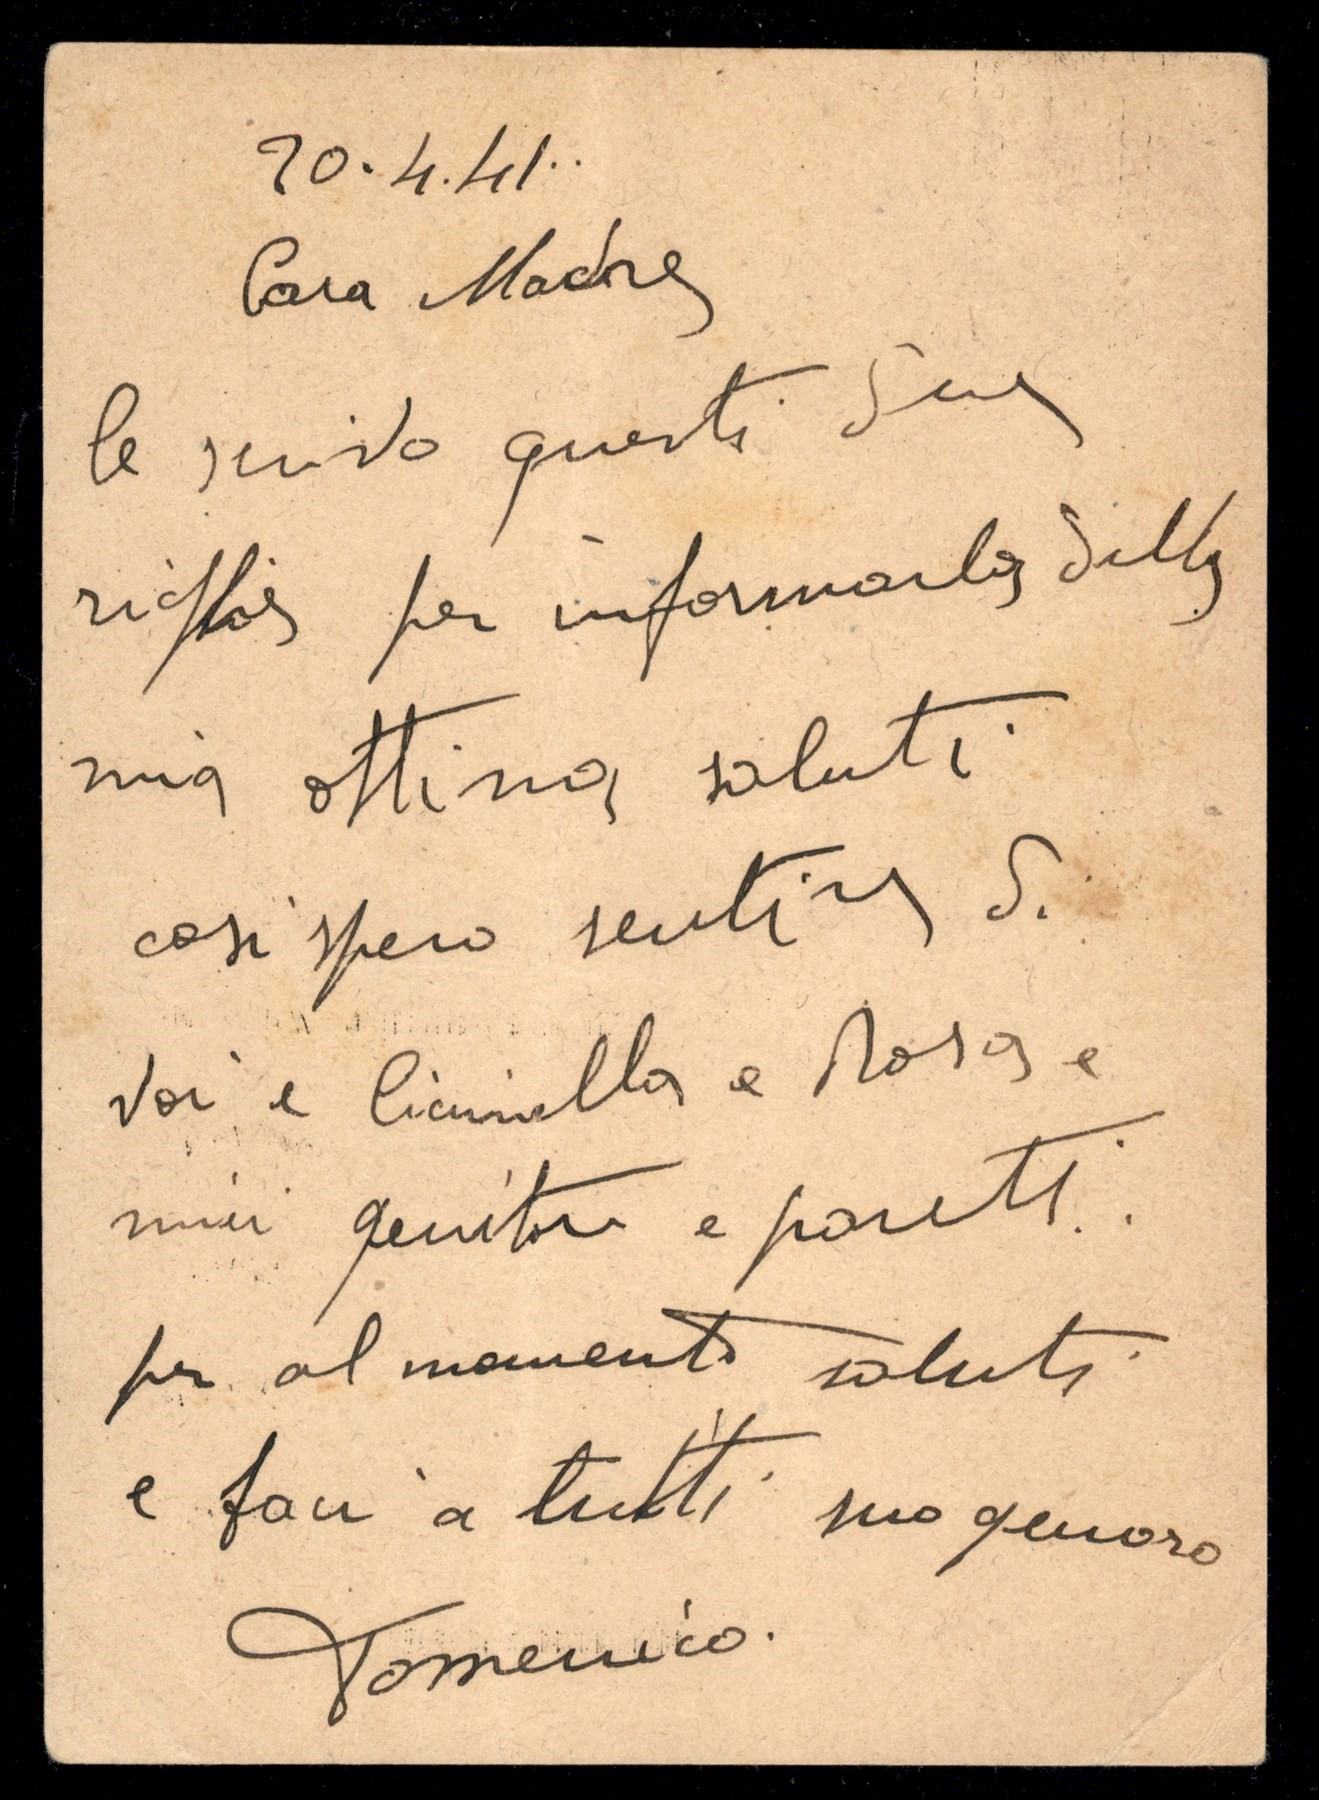 20.4.41..
Cara Madre
le scrivo questi due
righe per informarla della
mia ottima saluti
cosi spero sentire di
voi e e Rosa e
miei genitori e parenti.
per al momento saluti
e baci a tutti suo genero
Domenico.